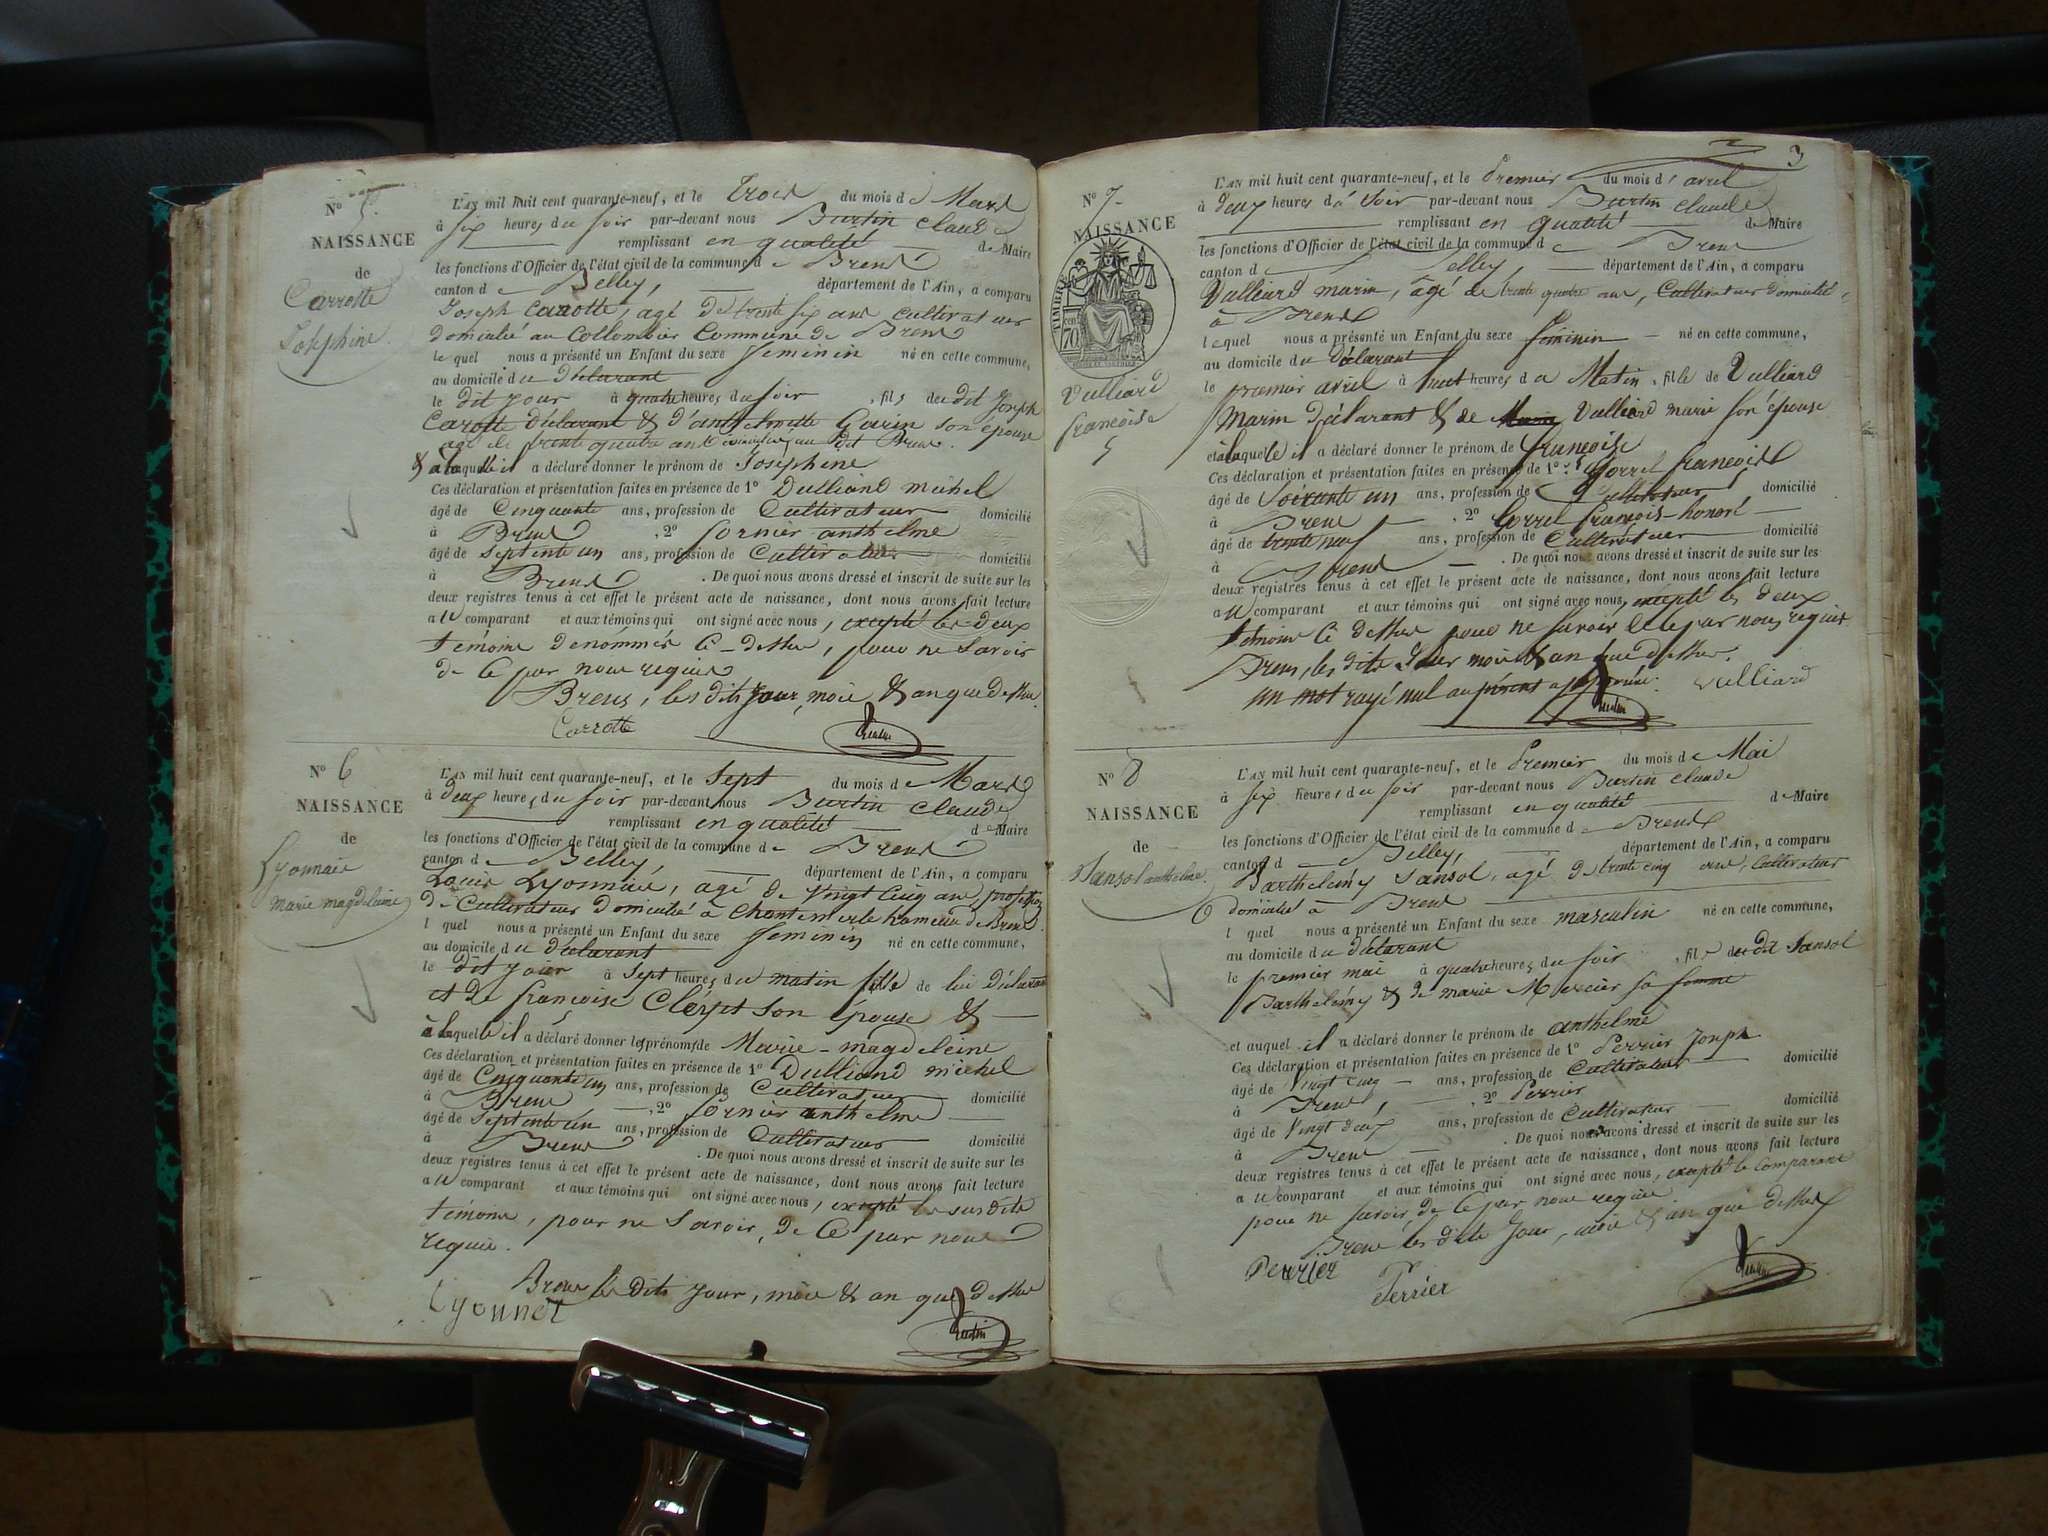 N° 5.
NAISSANCE
de
Carrotte
Joséphine
L'AN mil huit cent quarante-neuf, et le trois du mois de Mars
à six heures du soir par-devant nous Burtin Claude
remplissant en qualité de Maire
les fonctions d'Officier de l'état civil de la commune de Brens
canton de Belley, département de l'Ain, a comparu
Joseph Carotte, agé de trente six ans cultivateur
domicilié au Collombier Commune de Brens
le quel nous a présenté un Enfant du sexe feminin né en cette commune,
au domicile du déclarant
le dit jour à quatre heures du soir, fils du dit Joseph
Carotte déclarant & d'anthelmette Garin son épouse
agé de trente quatre ans domiciliés au dit Brens.
& à laquelle il a déclaré donner le prénom de Joséphine
Ces déclaration et présentation faites en présence de 1° Dulliand michel
âgé de Cinquante ans, profession de Cultivateur domicilié
à Brens, 2° fornier anthelme
âgé de septente un ans, profession de Cultivateur domicilié
à Brens. De quoi nous avons dressé et inscrit de suite sur les
deux registres tenus à cet effet le présent acte de naissance, dont nous avons fait lecture
au comparant et aux témoins qui ont signé avec nous, excepté les deux
témoins dénommés ci-dessus, pour ne savoir
de ce par nous requis
Brens, les dits jour, mois & an que dessus
Carrotte Burtin
N° 6
NAISSANCE
de
Lyonnais
marie magdeleine
L'AN mil huit cent quarante-neuf, et le sept du mois de Mars
à deux heures du soir par-devant nous Burtin Claude
remplissant en qualité de Maire
les fonctions d'Officier de l'état civil de la commune de Brens
canton de Belley, département de l'Ain, a comparu
Louis Lyonnais, agé de vingt cinq ans, profession
de Cultivateur domicilié à Chantemerle hameau de Brens
l quel nous a présenté un Enfant du sexe feminin né en cette commune,
au domicile du déclarant
le dit jour à sept heures du matin fille de lui déclarant
et de françoise Clerjet son épouse &
à laquelle il a déclaré donner les prénoms de Marie-magdeleine
Ces déclaration et présentation faites en présence de 1° Dulliand michel
âgé de Cinquante un ans, profession de Cultivateur domicilié
à Brens, 2° fornier anthelme
âgé de septente un ans, profession de Cultivateur domicilié
à Brens. De quoi nous avons dressé et inscrit de suite sur les
deux registres tenus à cet effet le présent acte de naissance, dont nous avons fait lecture
au comparant et aux témoins qui ont signé avec nous, excepté les susdits
témoins, pour ne savoir, de ce par nous
requis.
Brens les dits jour, mois & an que dessus
Lyonnet Burtin
3
N° 7
NAISSANCE
TIMBRE
70
Vulliard
françoise
L'AN mil huit cent quarante-neuf, et le premier du mois d'avril
à deux heures du soir par-devant nous Burtin Claude
remplissant en qualité de Maire
les fonctions d'Officier de l'état civil de la commune de Brens
canton de Belley, département de l'Ain, a comparu
Vulliard marin, agé de trente quatre ans, Cultivateur domicilié
à Brens
lequel nous a présenté un Enfant du sexe féminin né en cette commune,
au domicile du déclarant
le premier avril à huit heures du Matin, fille de Vulliard
Marin déclarant & de Vulliard marie son épouse
et à laquelle il a déclaré donner le prénom de françoise
Ces déclaration et présentation faites en présence de 1° Gorrel françois
âgé de soixante un ans, profession de Cultivateur domicilié
à Brens, 2° Gorrel françois-honoré
âgé de trente neuf ans, profession de Cultivateur domicilié
à Brens. De quoi nous avons dressé et inscrit de suite sur les
deux registres tenus à cet effet le présent acte de naissance, dont nous avons fait lecture
au comparant et aux témoins qui ont signé avec nous, excepté les deux
témoins ci dessus pour ne savoir de ce par nous requis
Brens, les dits jour mois & an que dessus.
un mot rayé nul au présent Vulliard
Burtin
N° 8
NAISSANCE
de
Sansol anthelme
L'AN mil huit cent quarante-neuf, et le premier du mois de Mai
à six heures du soir par-devant nous Burtin Claude
remplissant en qualité de Maire
les fonctions d'Officier de l'état civil de la commune de Brens
canton de Belley, département de l'Ain, a comparu
Barthelémy Sansol, agé de trente cinq ans, cultivateur
domicilié à Brens
l quel nous a présenté un Enfant du sexe masculin né en cette commune,
au domicile du déclarant
le premier mai à quatre heures du soir, fils du dit Sansol
Barthelémy & de marie Mercier sa femme
et auquel il a déclaré donner le prénom de anthelme
Ces déclaration et présentation faites en présence de 1° Perrier Joseph
âgé de Vingt cinq ans, profession de Cultivateur domicilié
à Brens, 2° Perrier
âgé de Vingt deux ans, profession de Cultivateur domicilié
à Brens. De quoi nous avons dressé et inscrit de suite sur les
deux registres tenus à cet effet le présent acte de naissance, dont nous avons fait lecture
au comparant et aux témoins qui ont signé avec nous, excepté le comparant
pour ne savoir, de ce par nous requis
Brens les dits Jour, mois & an que dessus
Perrier Perrier Burtin